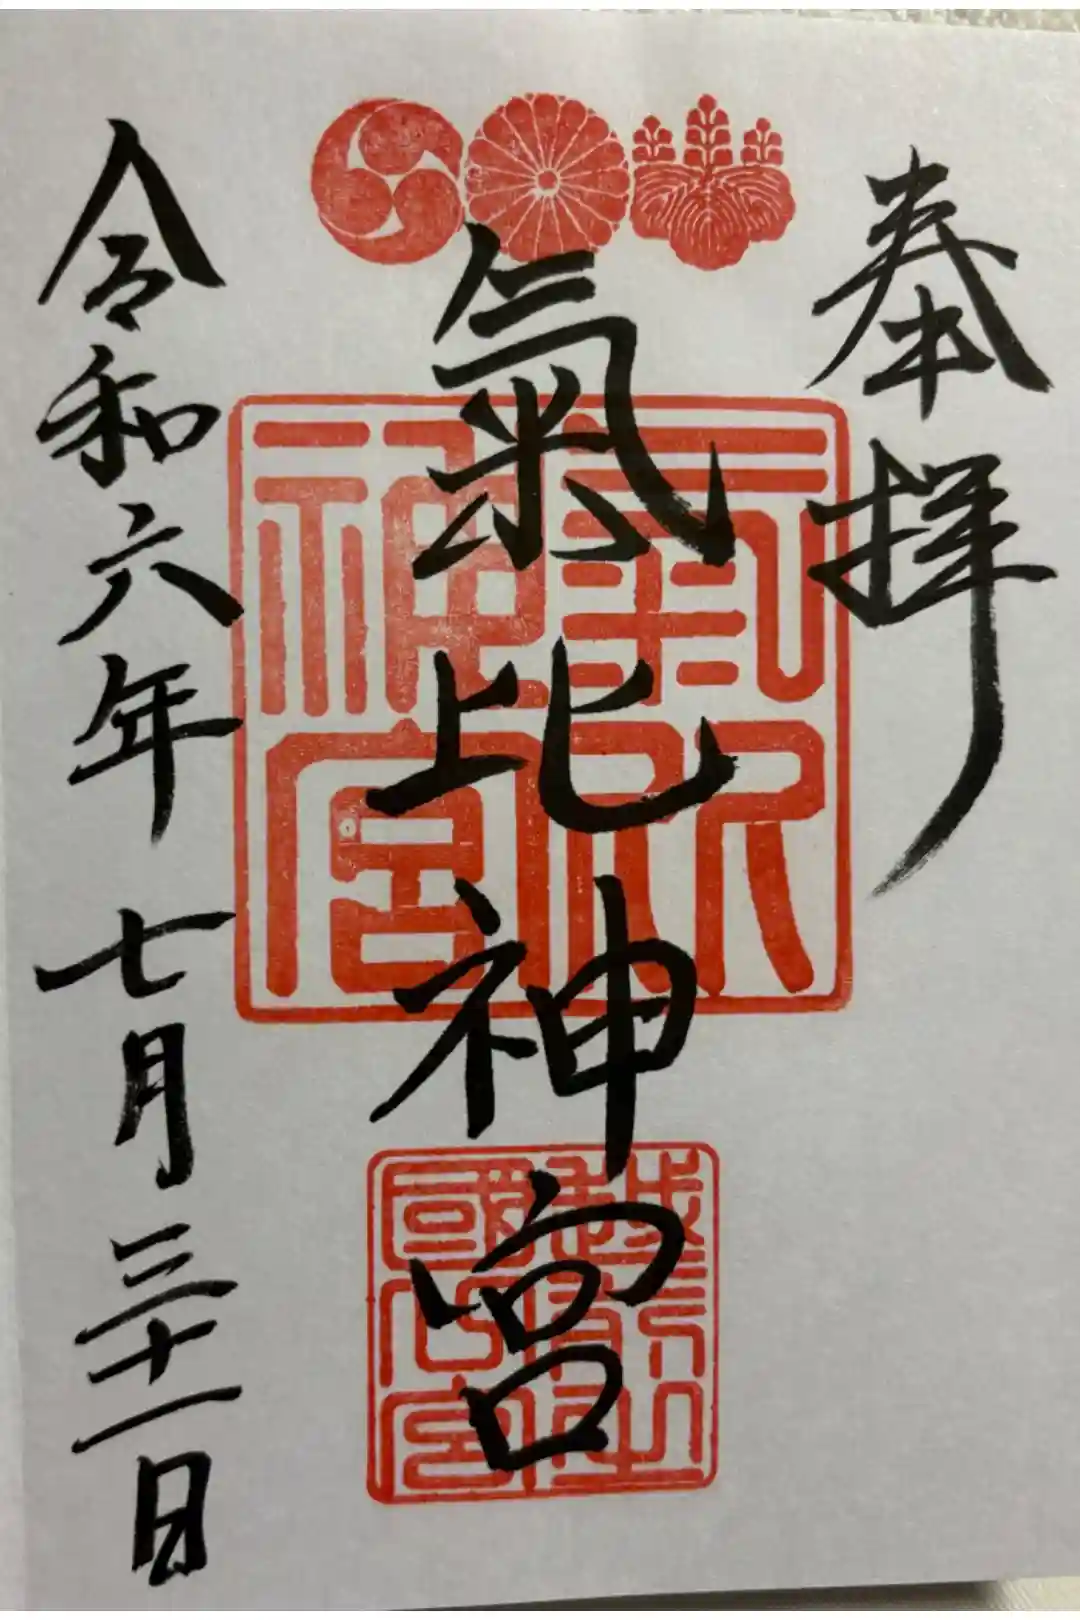 奉拝
氣比神宮
令和六年七月三十一日
氣比神宮